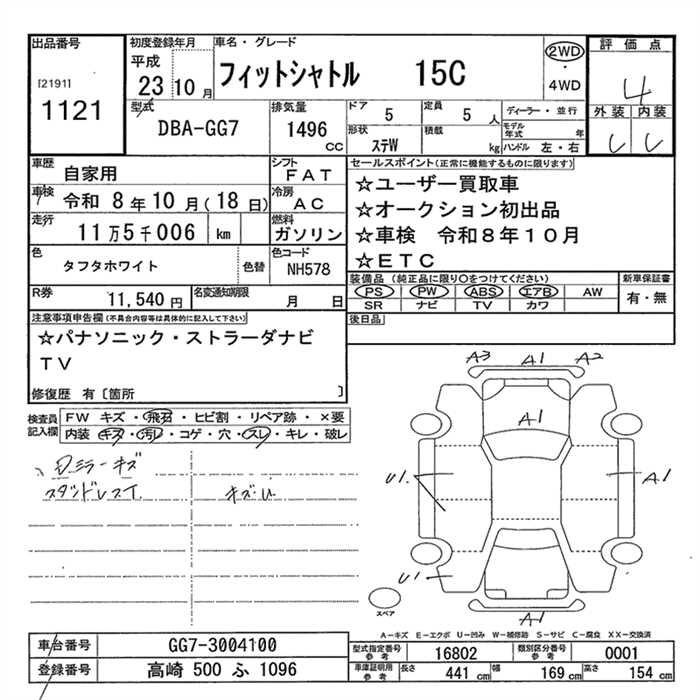 出品番号
[2191]
1121
初度登録年月
平成
23 10 月
車名・グレード
フィットシャトル 15C
2WD
・
4WD
評価点
4
外装 内装
型式
DBA-GG7
排気量
1496
CC
ドア
5
定員
5 人
形状
ステW
積載
kg
ディーラー・並行
モデル年式 年
ハンドル 左・右
車歴
自家用
シフト
FAT
車検
令和 8 年 10 月 (18 日)
冷房
AC
走行
11 万 5 千 006 km
燃料
ガソリン
色
タフタホワイト
色替
色コード
NH578
R券
11,540 円
名変通知期限
月 日
セールスポイント(正常に機能するものに限ります)
☆ユーザー買取車
☆オークション初出品
☆車検 令和8年10月
☆ETC
装備品 (純正品に限り○をつけてください)
PS PW ABS エアB AW
SR ナビ TV カワ
新車保証書
有・無
後日品
注意事項申告欄(不具合内容等は具体的に記入して下さい)
☆パナソニック・ストラーダナビ
TV
修復歴 有〔箇所 〕
検査員記入欄
FW キズ・飛石・ヒビ割・リペア跡・×要
内装・キズ・汚レ・コゲ・穴・スレ・キレ・破レ
ミラーキズ
キズ
A3 A1 A2
A1
U1
A1
U1
A1
スペア
A-キズ E-エクボ U-凹み W-補修跡 S-サビ C-腐食 XX-交換済
車台番号
GG7-3004100
登録番号
高崎 500 ふ 1096
型式指定番号
参考
16802
類別区分番号
参考
0001
車庫証明用
参考
長さ 441 cm
幅 169 cm
高さ 154 cm